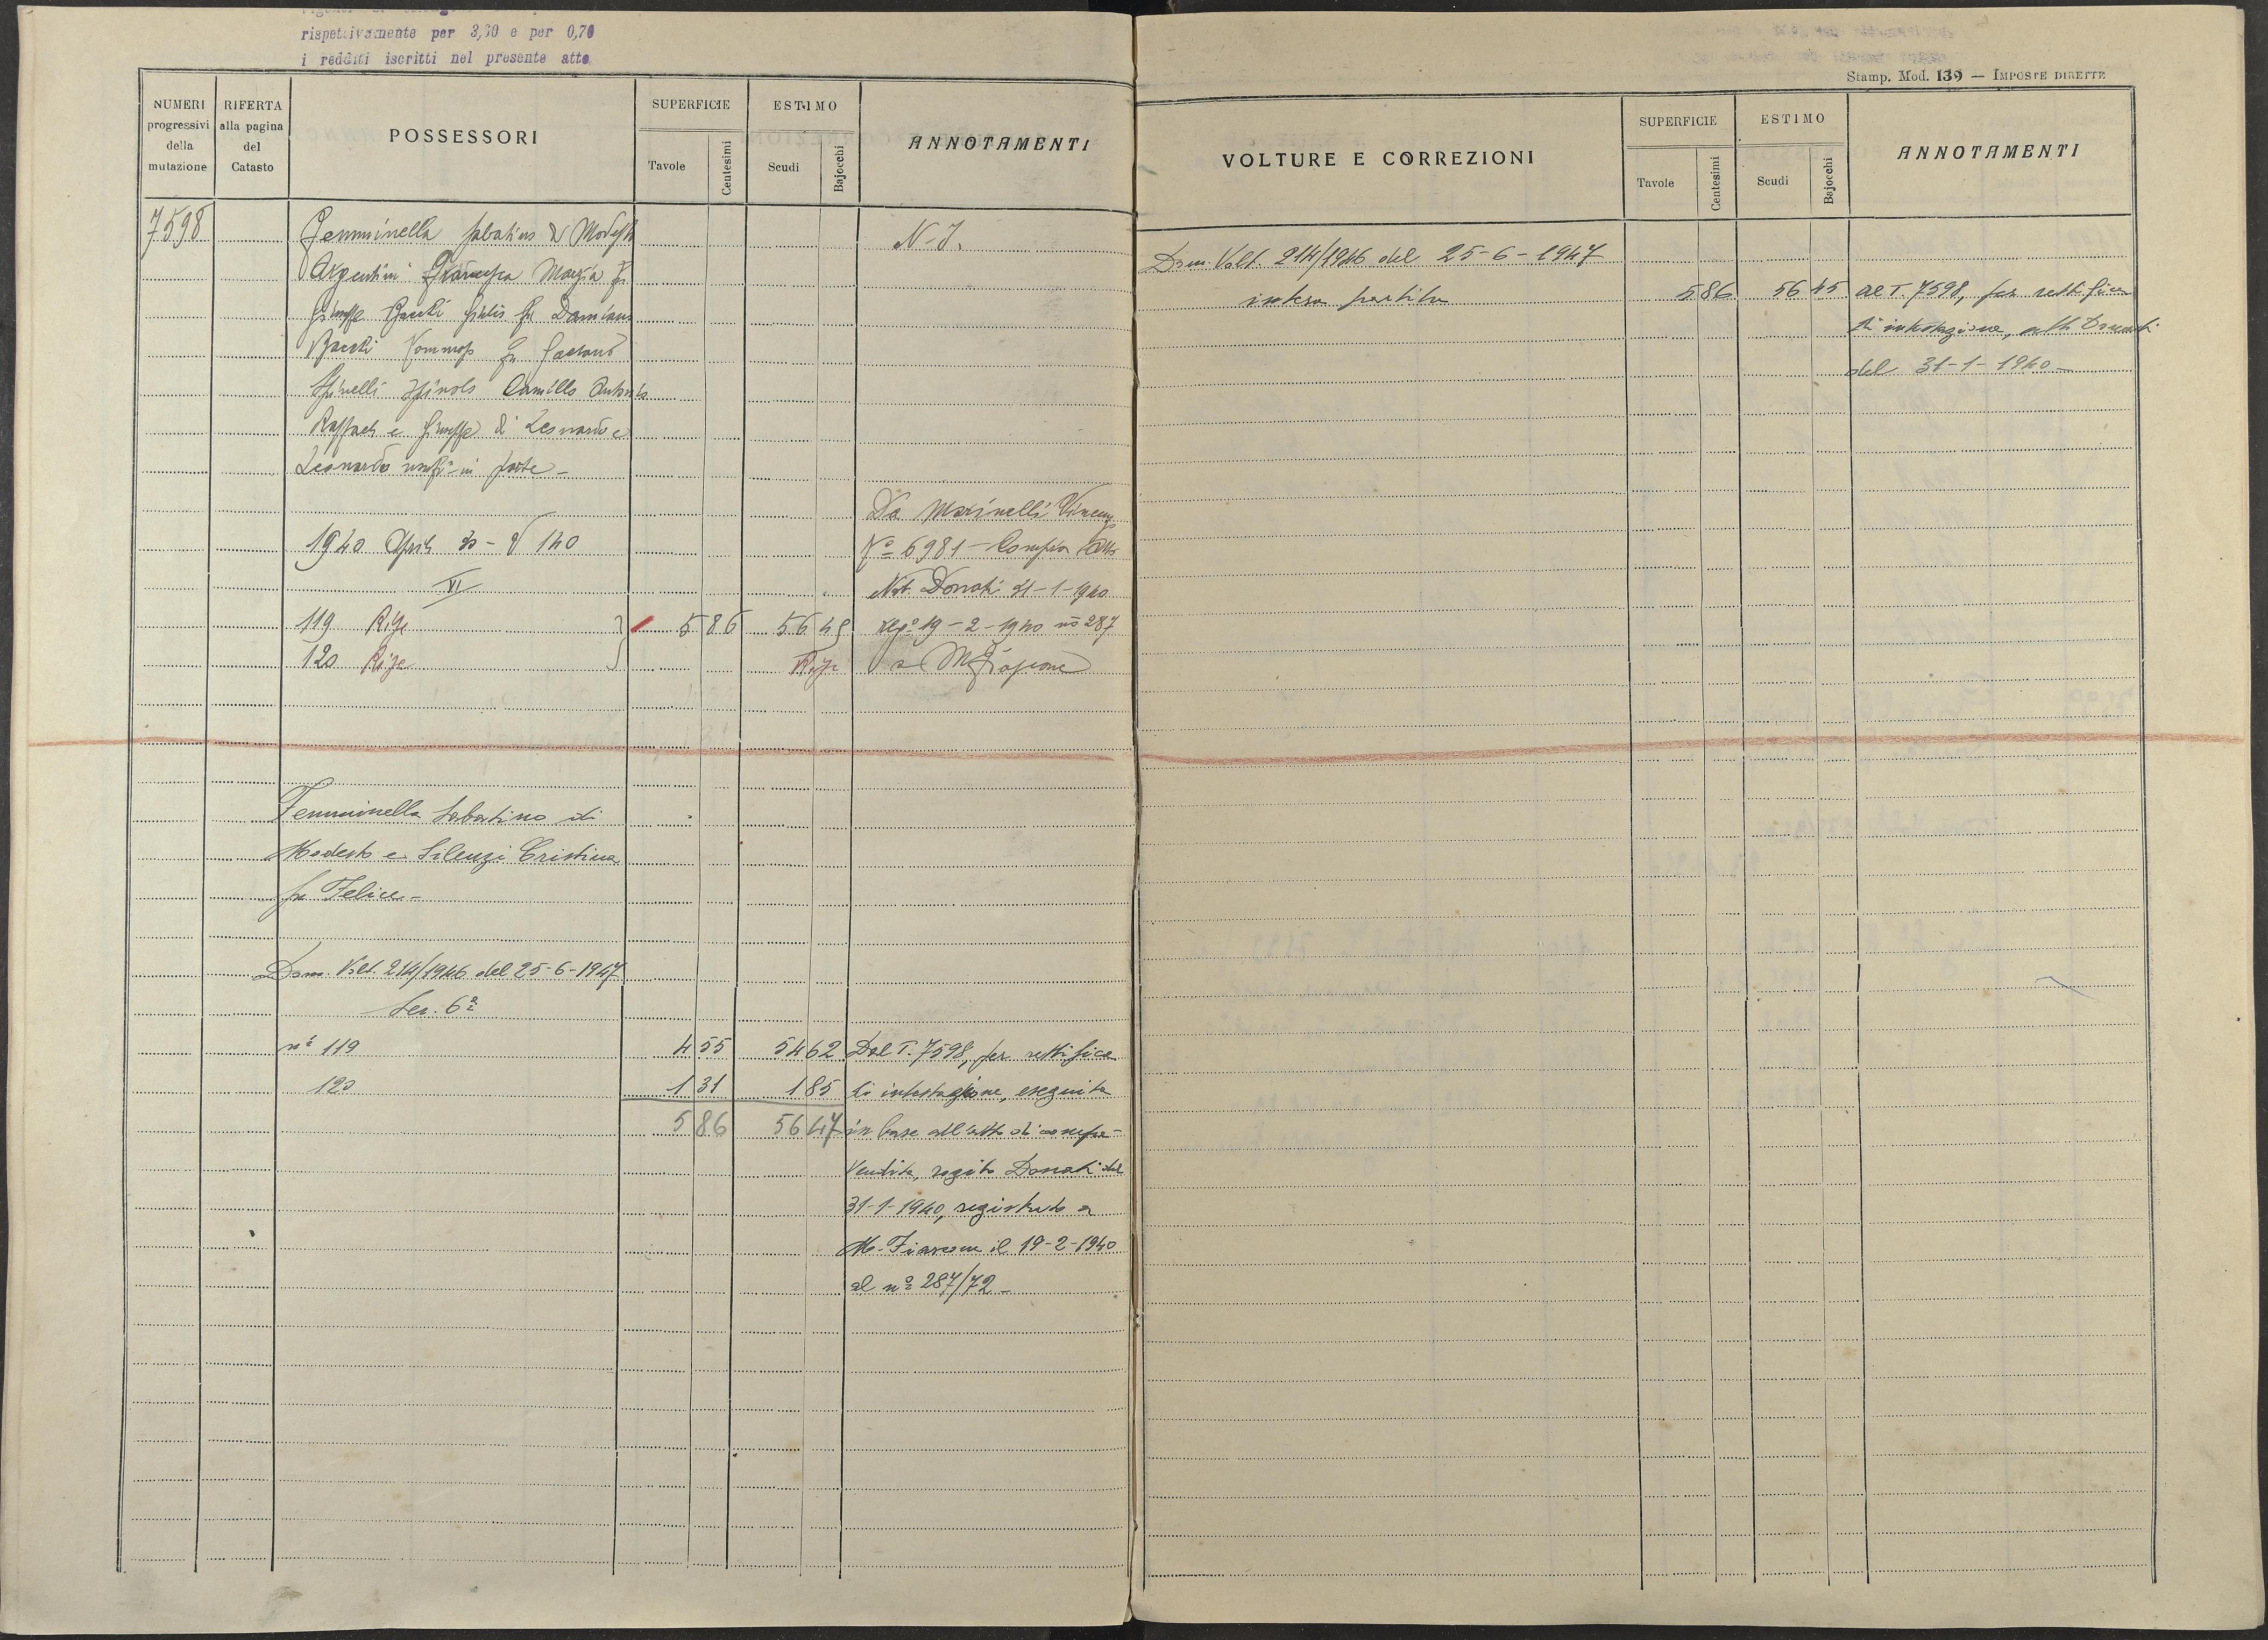 rispettivamente per 3,30 e per 0,70
i redditi iscritti nel presente atto
NUMERI progressivi della mutazione
RIFERTA alla pagina del Catasto
POSSESSORI
SUPERFICIE
Tavole
Centesimi
ESTIMO
Scudi
Bajocchi
ANNOTAMENTI
7598
Femminella Sabatino di Modesto
Argentini Francesca Maria fu
Giuseppe fu Damiano
Tommaso fu Gaetano
Spinelli Camillo Antonio
Raffaele e Giuseppe di Leonardo e
Leonardo in parte -
1940 Aprile 30 - V 140
VI
119 Rige
120 Rige
5 86 56 45
Rige
N. I.
Da Marinelli Vincenzo
Nº 6981 - Compra Atto
Not. Donati 31-1-1940
Regº 19-2-1940 nº 287
a M. Fiascone
Femminella Sabatino di
Modesto e Silenzi Cristina
fu Felice -
Dom. Volt. 214/1946 del 25-6-1947
Sez. 6ª
nº 119 4 55 54 62
120 1 31 1 85
5 86 56 47
Dal T. 7598, per rettifica
di intestazione, eseguita
in base all'atto di compra-
vendita, rogito Donati del
31-1-1940, registrato a
M. Fiascone il 19-2-1940
al nº 287/72 -
Stamp. Mod. 139 — IMPOSTE DIRETTE
VOLTURE E CORREZIONI
SUPERFICIE
Tavole
Centesimi
ESTIMO
Scudi
Bajocchi
ANNOTAMENTI
Dom. Volt. 214/1946 del 25-6-1947
intera partita 5 86 56 45
al T. 7598, per rettifica
di intestazione, atto Donati
del 31-1-1940 -